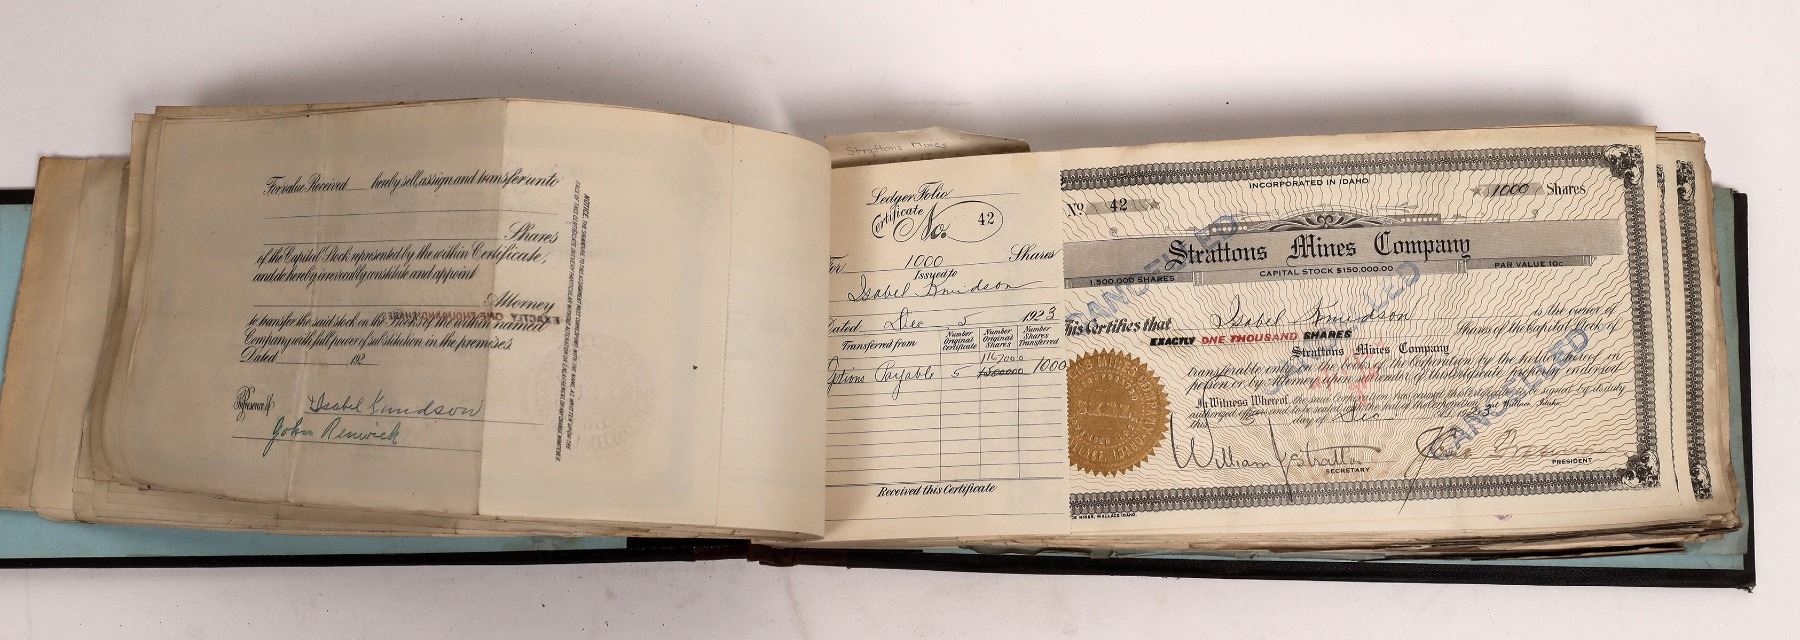 For value Received hereby sell, assign and transfer unto
Shares
of the Capital Stock represented by the within Certificate,
and do hereby irrevocably constitute and appoint
Attorney
EXACTLY ONE THOUSAND SHARES
to transfer the said stock on the Books of the within named
Company with full power of substitution in the premises.
Dated 192
Presence of
Isabel Knudson
John Renwick
Strattons Mines
Ledger Folio
Certificate No. 42
For 1000 Shares
Issued to
Isabel Knudson
Dated Dec 5 1923
Transferred from
Number Original Certificate
Number Original Shares
Number Shares Transferred
Options Payable 5 1500000 1000
Received this Certificate
INCORPORATED IN IDAHO
No 42
1000 Shares
Strattons Mines Company
1,500,000 SHARES
CAPITAL STOCK $150,000.00
PAR VALUE 10c
CANCELLED
CANCELLED
CANCELLED
This Certifies that Isabel Knudson is the owner of
EXACTLY ONE THOUSAND SHARES Shares of the Capital Stock of
Strattons Mines Company
transferable only on the books of the Corporation by the holder hereof in
person or by Attorney upon surrender of this Certificate properly endorsed
In Witness Whereof, the said Corporation has caused this Certificate to be signed by its duly
authorized officers and to be sealed with the Seal of the Corporation at Wallace, Idaho,
this 5 day of Dec 1923
William Stratton
SECRETARY
PRESIDENT
WALLACE, IDAHO.